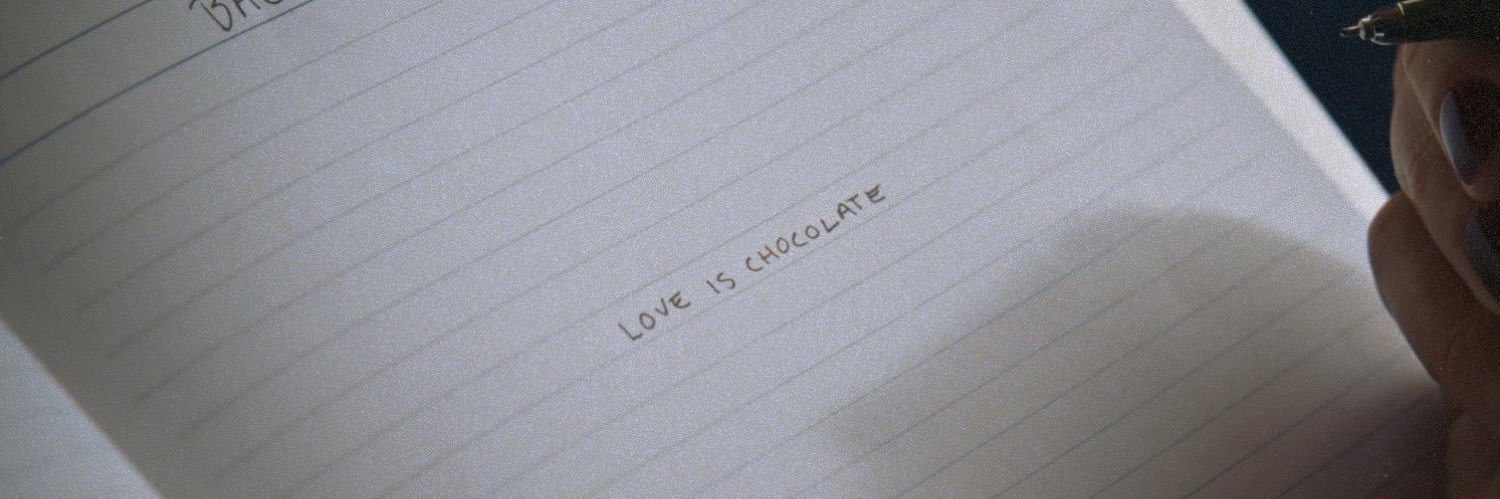 LOVE IS CHOCOLATE